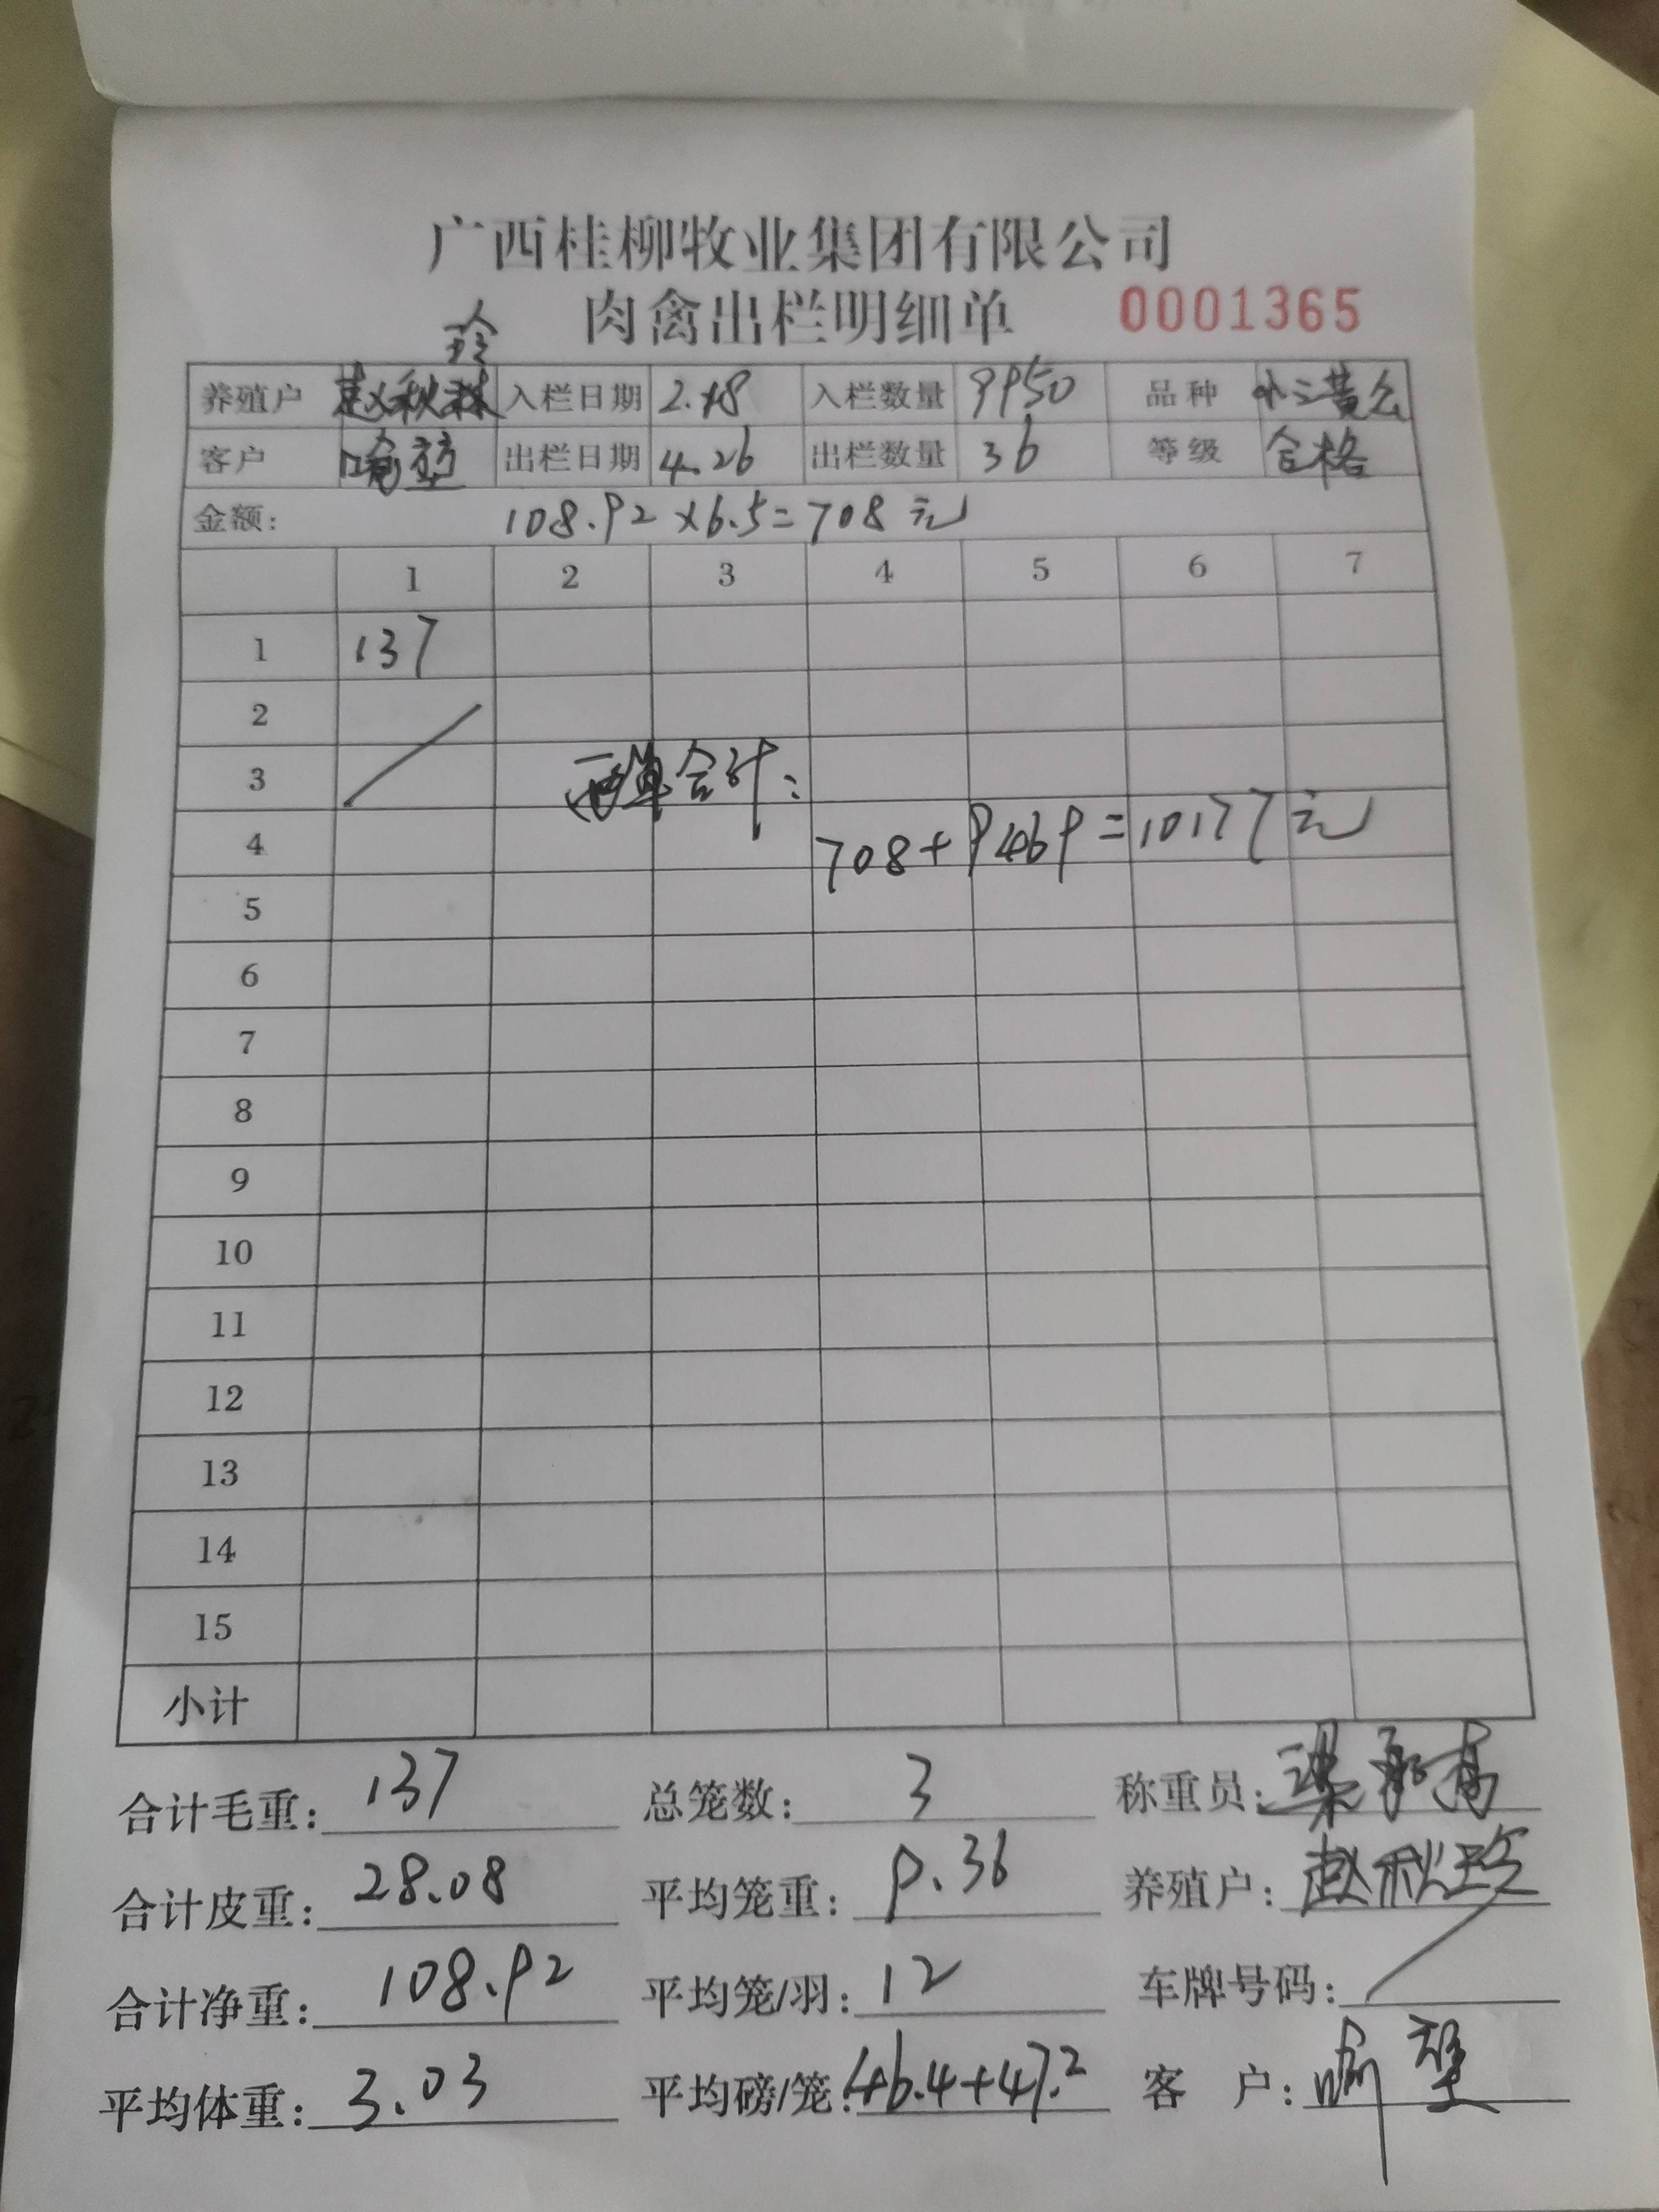 广西桂柳牧业集团有限公司
肉禽出栏明细单 0001365
玲
养殖户 赵秋 入栏日期 2.18 入栏数量 9950 品种 小三黄公
客户 喻 出栏日期 4.26 出栏数量 36 等级 合格
金额: 108.92×6.5=708元
1 2 3 4 5 6 7
1 137
2
3 两单合计:
4 708+9469=10177元
5
6
7
8
9
10
11
12
13
14
15
小计
合计毛重: 137 总笼数: 3 称重员: 梁
合计皮重: 28.08 平均笼重: 9.36 养殖户: 赵秋玲
合计净重: 108.92 平均笼/羽: 12 车牌号码:
平均体重: 3.03 平均磅/笼: 46.4+47.2 客户: 喻